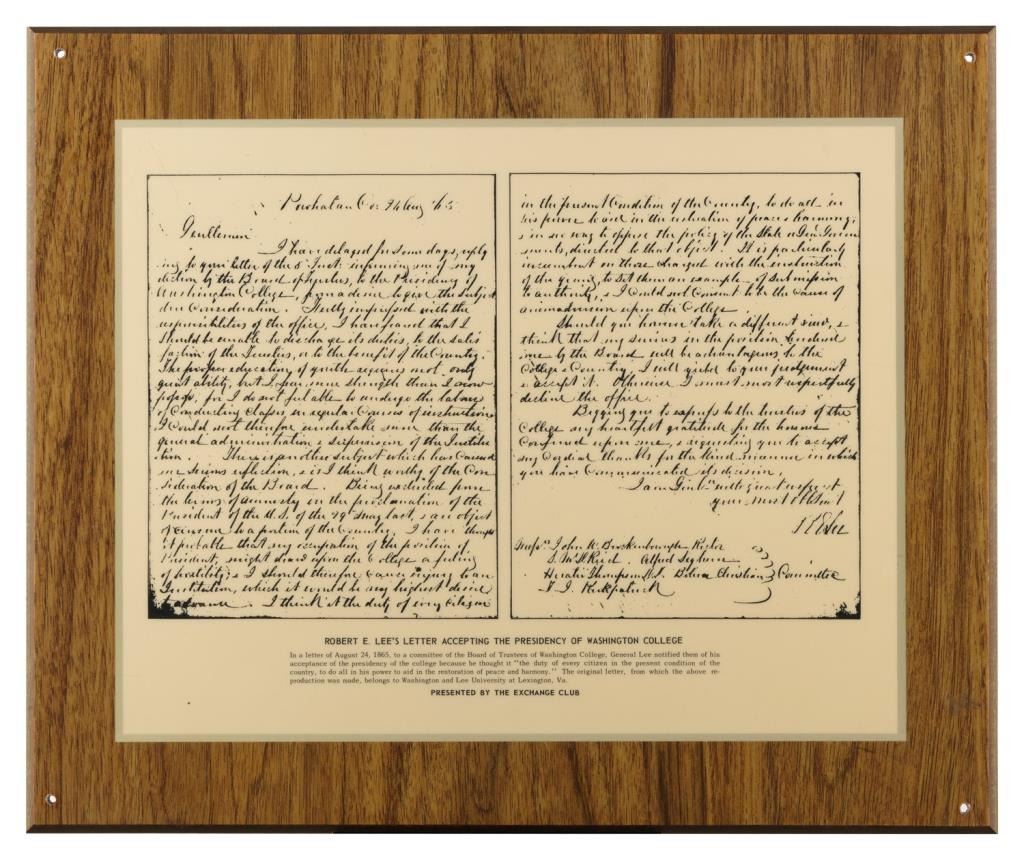 Powhatan Co: 24 Aug '65
Gentlemen
I have delayed for some days, reply
ing to your letter of the 5 Inst: informing me of my
election by the Board of Trustees, to the Presidency of
Washington College, from a desire to give the subject
due Consideration. Fully impressed with the
responsibilities of the office, I have feared that I
should be unable to discharge its duties, to the satis
faction of the Trustees, or to the benefit of the Country.
The proper education of youth requires not only
great ability, but I fear more strength than I now
possess, for I do not feel able to undergo the labour
of Conducting Classes in regular Courses of instruction
I could not therefore undertake more than the
general administration & supervision of the Institu
tion. There is another subject which has caused
me serious reflection, & is I think worthy of the Con
sideration of the Board. Being excluded from
the terms of amnesty in the proclamation of the
President of the U.S. of the 29 May last, & an object
of censure to a portion of the Country, I have thought
it probable that my occupation of the position of
President, might draw upon the College a feeling
of hostility; & I should therefore cause injury to an
Institution, which it would be my highest desire
to advance. I think it the duty of every citizen
in the present Condition of the Country, to do all in
his power to aid in the restoration of peace & harmony;
& in no way to oppose the policy of the State or Genl Govern
ments, directed to that object. It is particularly
incumbent on those charged with the instruction
of the young, to set them an example of submission
to authority, & I could not consent to be the cause of
animadversion upon the College.
Should you however take a different view, &
think that my services in the position tendered
me by the Board will be advantageous to the
College & Country, I will yield to your judgement
& accept it. Otherwise I must most respectfully
decline the office.
Begging you to express to the trustees of the
College my heartfelt gratitude for the honour
Conferred upon me, & requesting you to accept
my Cordial thanks for the kind manner in which
you have Communicated its decision,
I am Gentn with great respect
your most obt Servt
R E Lee
Messrs John W. Brockenbrough Rector
S. McD. Reid Alfred Leyburn
Horatio Thompson D.D. Bolivar Christian Committee
T. J. Kirkpatrick
ROBERT E. LEE'S LETTER ACCEPTING THE PRESIDENCY OF WASHINGTON COLLEGE
In a letter of August 24, 1865, to a committee of the Board of Trustees of Washington College, General Lee notified them of his
acceptance of the presidency of the college because he thought it "the duty of every citizen in the present condition of the
country, to do all in his power to aid in the restoration of peace and harmony." The original letter, from which the above re-
production was made, belongs to Washington and Lee University at Lexington, Va.
PRESENTED BY THE EXCHANGE CLUB